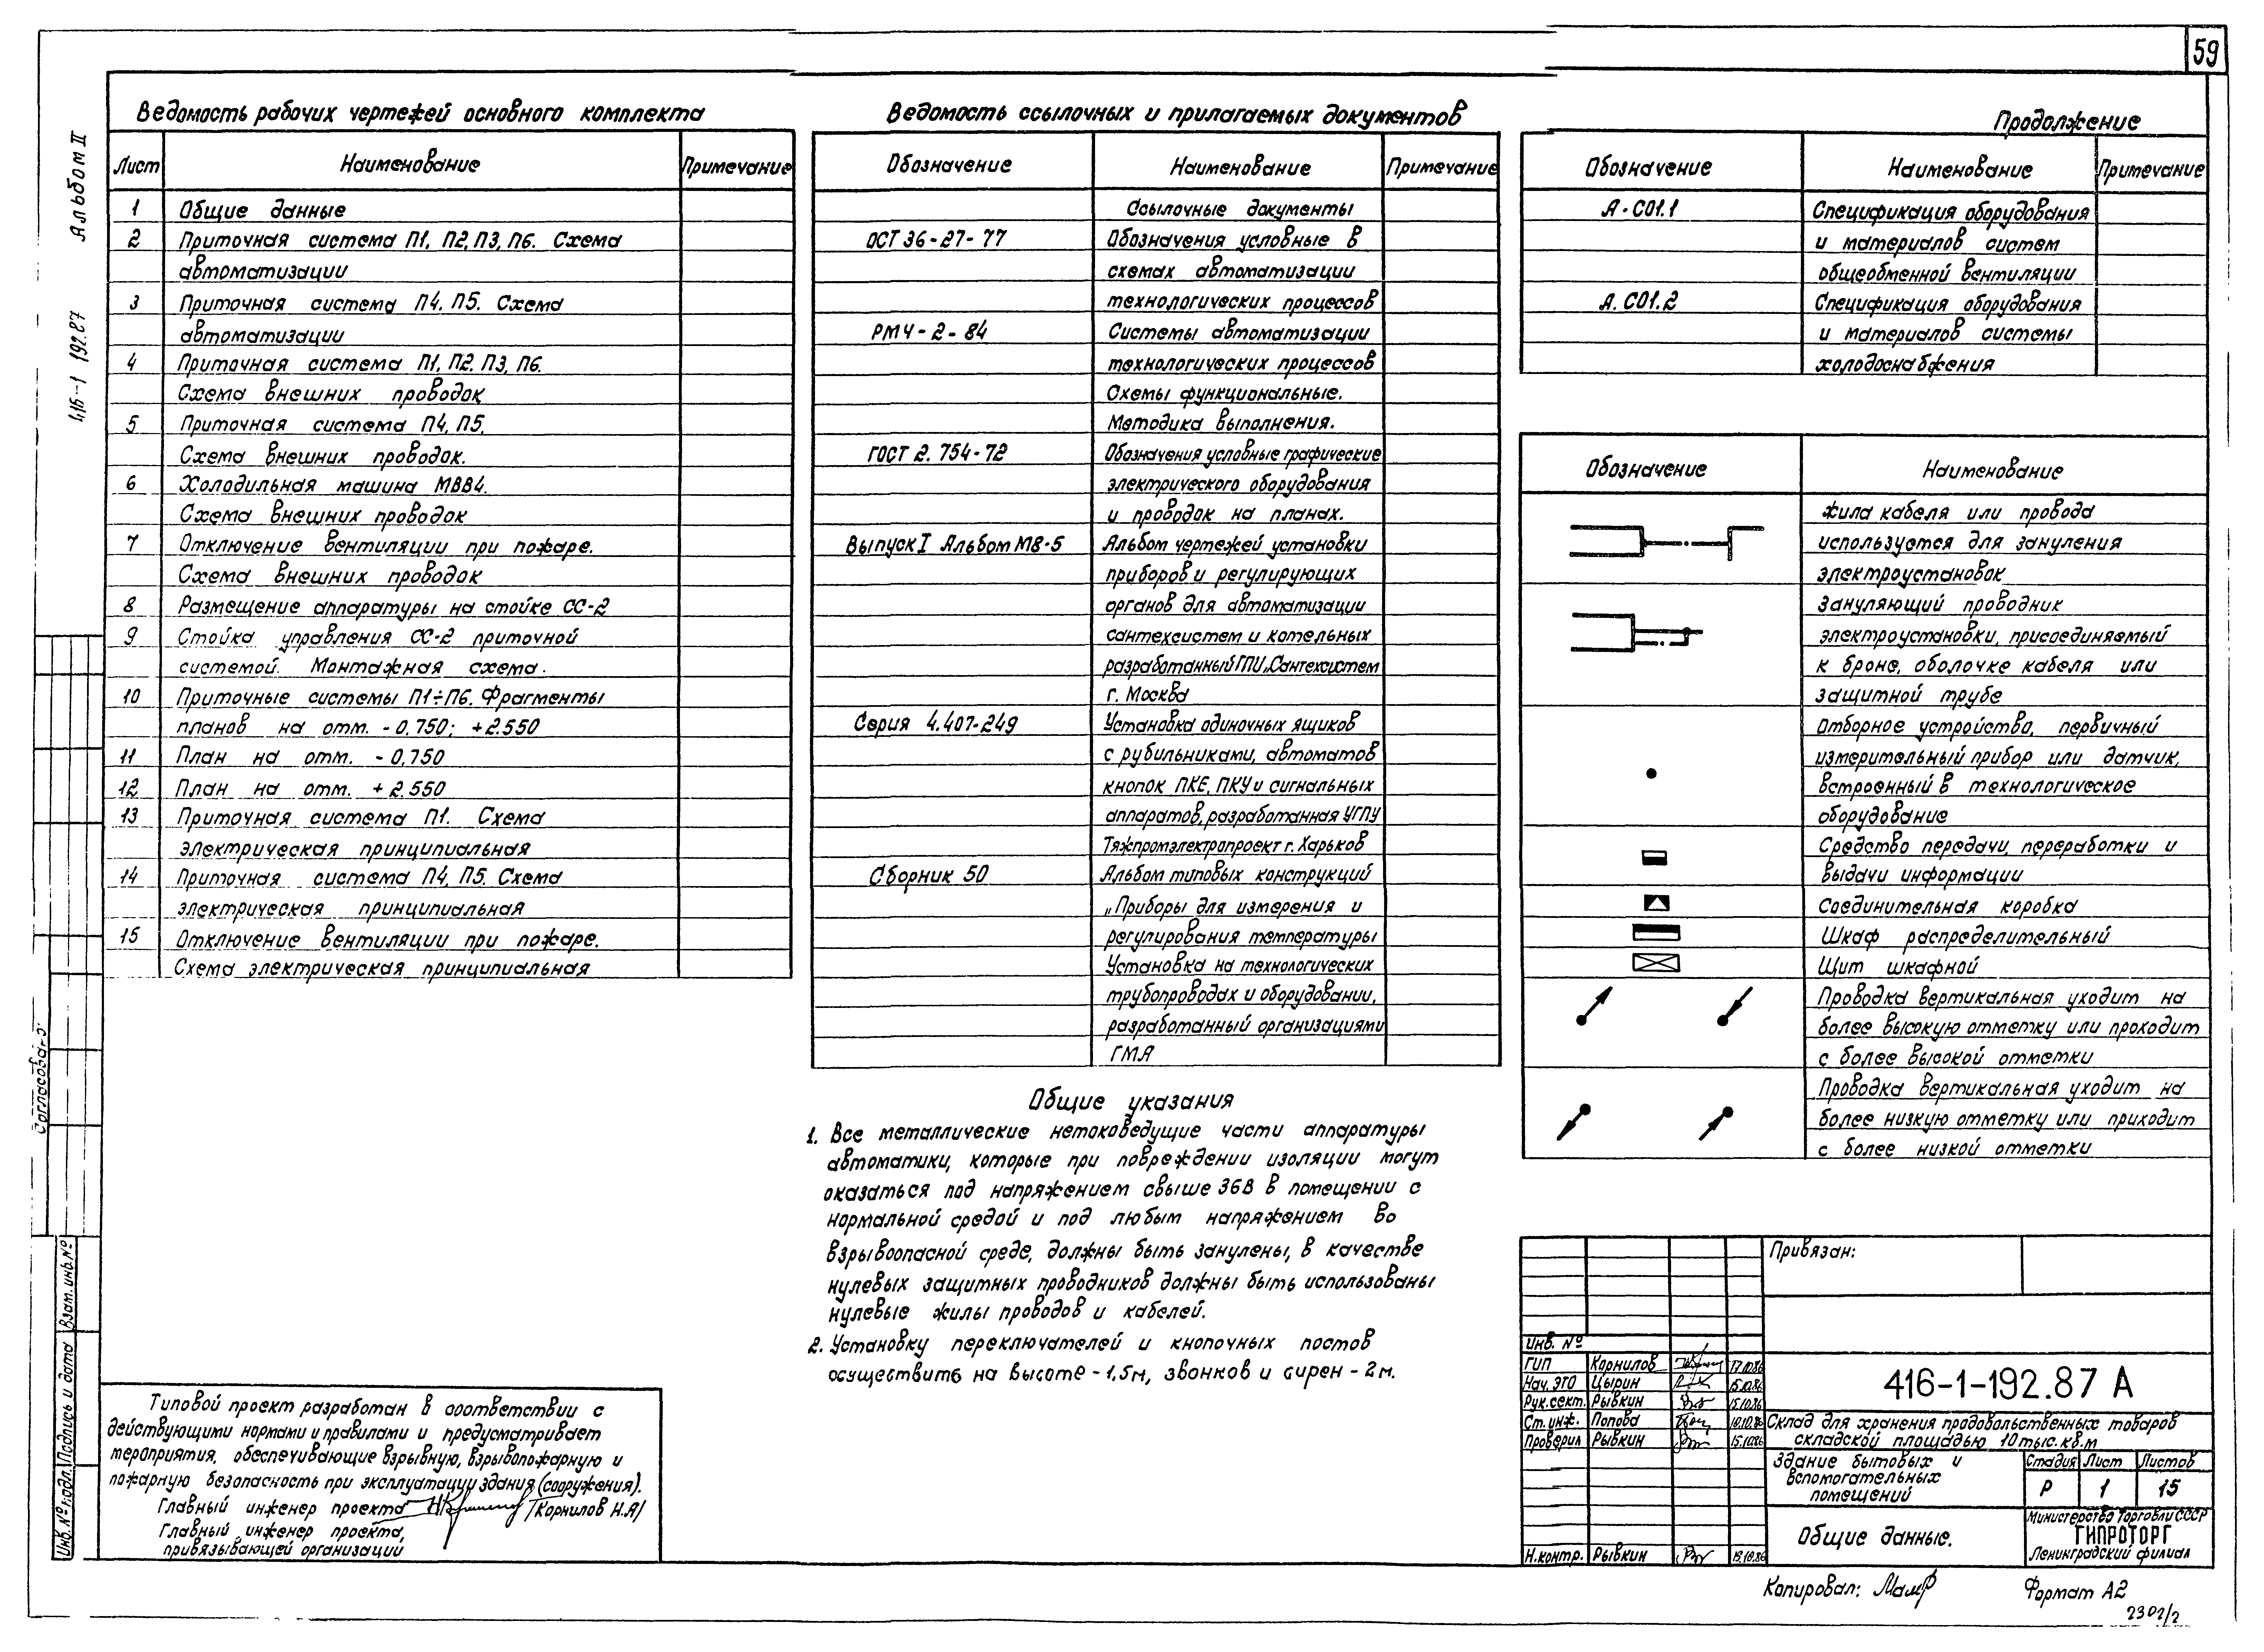 59
Альбом II
416-1 192.87
Ведомость рабочих чертежей основного комплекта
Лист Наименование Примечание
1 Общие данные
2 Приточная система П1, П2, П3, П6. Схема
автоматизации
3 Приточная система П4. П5. Схема
автоматизации
4 Приточная система П1, П2. П3, П6.
Схема внешних проводок
5 Приточная система П4, П5.
Схема внешних проводок.
6 Холодильная машина МВВ4.
Схема внешних проводок
7 Отключение вентиляции при пожаре.
Схема внешних проводок
8 Размещение аппаратуры на стойке СС-2
9 Стойка управления СС-2 приточной
системой. Монтажная схема.
10 Приточные системы П1÷П6. Фрагменты
планов на отм. -0,750; +2.550
11 План на отм. -0,750
12 План на отм. +2.550
13 Приточная система П1. Схема
электрическая принципиальная
14 Приточная система П4, П5. Схема
электрическая принципиальная
15 Отключение вентиляции при пожаре.
Схема электрическая принципиальная
Ведомость ссылочных и прилагаемых документов
Обозначение Наименование Примечание
Ссылочные документы
ОСТ 36-27-77 Обозначения условные в
схемах автоматизации
технологических процессов
РМ4-2-84 Системы автоматизации
технологических процессов
Схемы функциональные.
Методика выполнения.
ГОСТ 2.754-72 Обозначения условные графические
электрического оборудования
и проводок на планах.
Выпуск I Альбом М8-5 Альбом чертежей установки
приборов и регулирующих
органов для автоматизации
сантехсистем и котельных
разработанный ГПИ „Сантехсистем
г. Москва
Серия 4.407-249 Установка одиночных ящиков
с рубильниками, автоматов
кнопок ПКЕ, ПКУ и сигнальных
аппаратов, разработанная УГПУ
Тяжпромэлектропроект г. Харьков
Сборник 50 Альбом типовых конструкций
„Приборы для измерения и
регулирования температуры
Установка на технологических
трубопроводах и оборудовании,
разработанный организациями
ГМА
Продолжение
Обозначение Наименование Примечание
А.СО1.1 Спецификация оборудования
и материалов систем
общеобменной вентиляции
А.СО1.2 Спецификация оборудования
и материалов системы
холодоснабжения
Обозначение Наименование
Жила кабеля или провода
используется для зануления
электроустановок
Зануляющий проводник
электроустановки, присоединяемый
к броне, оболочке кабеля или
защитной трубе
Отборное устройство, первичный
измерительный прибор или датчик,
встроенный в технологическое
оборудование
Средство передачи, переработки и
выдачи информации
Соединительная коробка
Шкаф распределительный
Щит шкафной
Проводка вертикальная уходит на
более высокую отметку или проходит
с более высокой отметки
Проводка вертикальная уходит на
более низкую отметку или приходит
с более низкой отметки
Общие указания
1. Все металлические нетоковедущие части аппаратуры
автоматики, которые при повреждении изоляции могут
оказаться под напряжением свыше 36В в помещении с
нормальной средой и под любым напряжением во
взрывоопасной среде, должны быть занулены, в качестве
нулевых защитных проводников должны быть использованы
нулевые жилы проводов и кабелей.
2. Установку переключателей и кнопочных постов
осуществить на высоте - 1,5м, звонков и сирен - 2м.
Типовой проект разработан в соответствии с
действующими нормами и правилами и предусматривает
мероприятия, обеспечивающие взрывную, взрывопожарную и
пожарную безопасность при эксплуатации здания (сооружения).
Главный инженер проекта /Корнилов Н.Я/
Главный инженер проекта,
привязывающей организаций
Согласовано:
Взам. инв. №
Подпись и дата
Инв. № подл.
Привязан:
Инв. №
ГИП Корнилов 17.10.86
Нач. ЭТО Цырин 15.10.86
Рук. сект. Рывкин 15.10.86
Ст. инж. Попова 10.10.86
Проверил Рывкин 15.10.86
Н.контр. Рывкин
416-1-192.87 А
Склад для хранения продовольственных товаров
складской площадью 10 тыс. кв. м
Здание бытовых и
вспомогательных
помещений
Стадия Лист Листов
Р 1 15
Общие данные.
Министерство Торговли СССР
ГИПРОТОРГ
Ленинградский филиал
Копировал:
Формат А2
2302/2